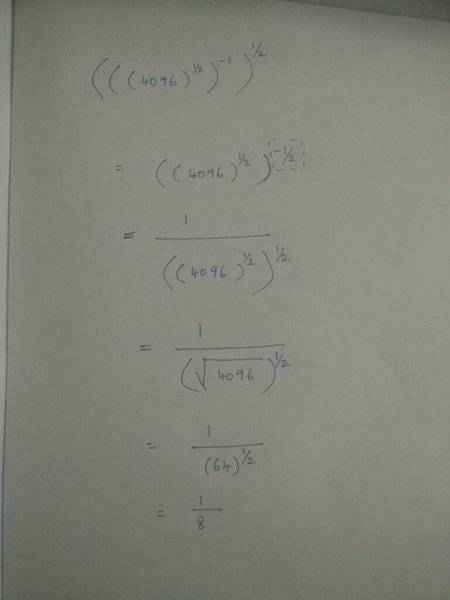 (((4096)^{1/2})^{-1})^{1/2}
= ((4096)^{1/2})^{-1/2}
= \frac{1}{((4096)^{1/2})^{1/2}}
= \frac{1}{(\sqrt{4096})^{1/2}}
= \frac{1}{(64)^{1/2}}
= \frac{1}{8}